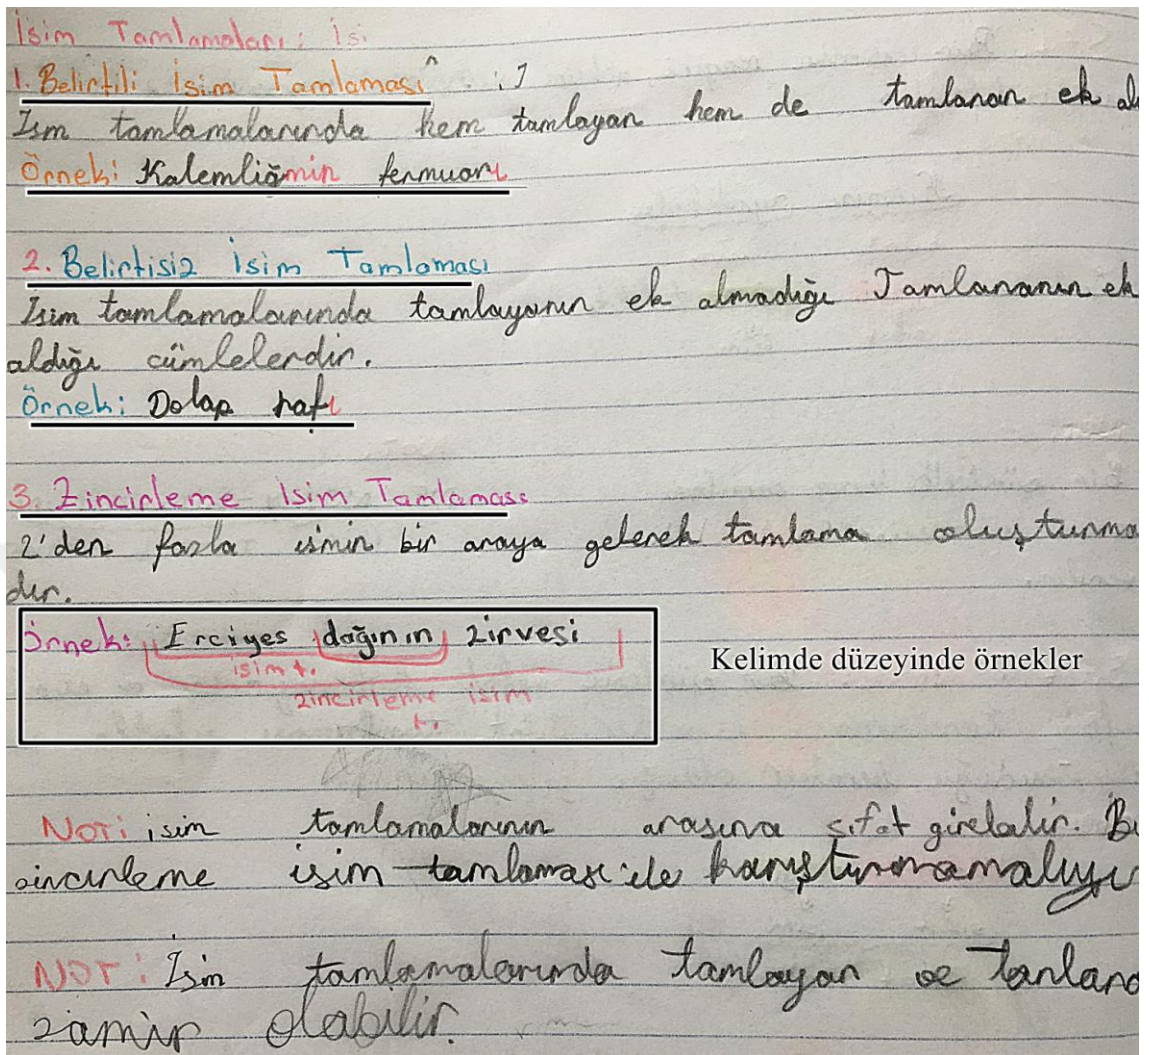 İsim Tamlamaları: İsi
1. Belirtili İsim Tamlaması : I
İsm tamlamalarında hem tamlayan hem de tamlanan ek al
Örnek: Kalemliğmin fermuarı
2. Belirtisiz İsim Tamlaması
İsim tamlamalarında tamlayanın ek almadığı Tamlananın ek
aldığı cümlelerdir.
Örnek: Dolap rafı
3. Zincirleme İsim Tamlaması
2'den fazla ismin bir araya gelerek tamlama oluşturma
dır.
Örnek: Erciyes dağının zirvesi
isim t.
zincirleme isim
t.
Kelimde düzeyinde örnekler
NOT: isim tamlamalarının arasına sıfat girebilir. Bu
zincirleme isim tamlaması ile karıştırmamalıyı
NOT: İsim tamlamalarında tamlayan ve tamlana
zamir olabilir.